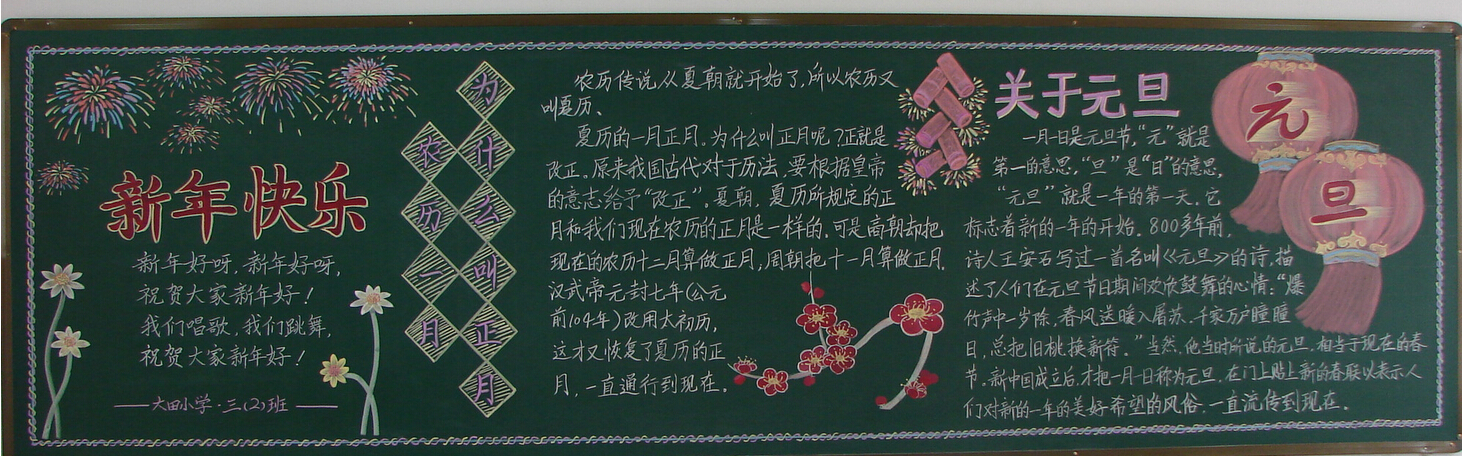 新年快乐
新年好呀,新年好呀,
祝贺大家新年好!
我们唱歌,我们跳舞,
祝贺大家新年好!
大田小学·三(2)班
农历一月
为什么叫正月
农历传说,从夏朝就开始了,所以农历又
叫夏历、
夏历的一月正月。为什么叫正月呢?正就是
改正。原来我国古代对于历法,要根据皇帝
的意志给予“改正”。夏朝,夏历所规定的正
月和我们现在农历的正月是一样的.可是商朝却把
现在的农历十二月算做正月,周朝把十一月算做正月.
汉武帝元封七年(公元
前104年)改用太初历,
这才又恢复了夏历的正
月,一直通行到现在.
关于元旦
一月一日是元旦节,“元”就是
第一的意思,“旦”是“日”的意思,
“元旦”就是一年的第一天.它
标志着新的一年的开始.800多年前,
诗人王安石写过一首名叫《元旦》的诗,描
述了人们在元旦节日期间欢欣鼓舞的心情:“爆
竹声中一岁除,春风送暖入屠苏.千家万户瞳瞳
日,总把旧桃换新符.”当然,他当时所说的元旦,相当于现在的春
节.新中国成立后,才把一月一日称为元旦.在门上贴上新的春联以表示人
们对新的一年的美好希望的风俗,一直流传到现在.
元
旦